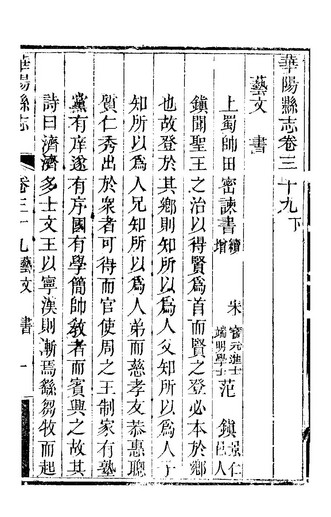 華陽縣志卷三十九下
藝文 書
上蜀師田密諫書續增 宋寶元進士端明學士范鎮景仁邑人
鎮聞聖王之治以得賢爲首而賢之登必本於鄉
也故登於其鄉則知所以爲人父知所以爲人子
知所以爲人兄知所以爲人弟而慈孝友恭惠聰
質仁秀出於衆者可得而官使周之王制家有塾
黨有庠遂有序國有學簡師教者而賓興之故其
詩曰濟濟多士文王以寧漢則漸焉緜芻牧而起
華陽縣志 卷三十九藝文 書 一